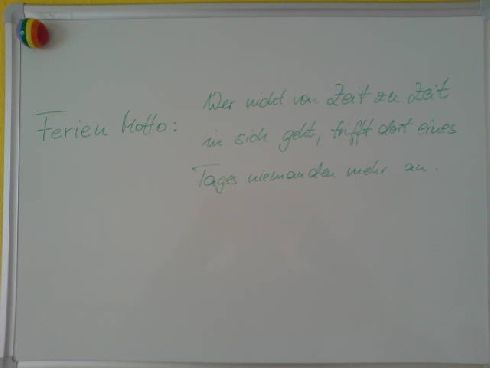 Ferien Motto:
Wer nicht von Zeit zu Zeit
in sich geht, trifft dort eines
Tages niemanden mehr an.